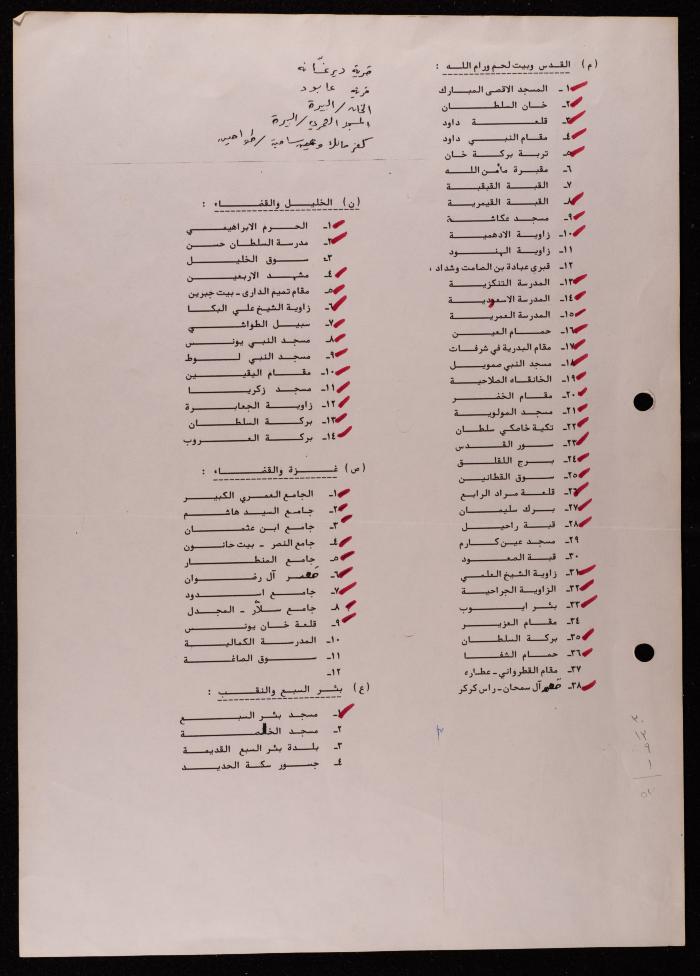 (م) القدس وبيت لحم ورام الله :
١- المسجد الاقصى المبارك
٢- خان السلطان
٣- قلعة داود
٤- مقام النبي داود
٥- تربة بركة خان
٦- مقبرة مأمن الله
٧- القبة القبقبة
٨- القبة القيمرية
٩- مسجد عكاشة
١٠- زاوية الادهمية
١١- زاوية الهنود
١٢- قبري عبادة بن الصامت وشداد ،
١٣- المدرسة التنكزية
١٤- المدرسة الاسعودية
١٥- المدرسة العمرية
١٦- حمام العين
١٧- مقام البدرية في شرفات
١٨- مسجد النبي صمويل
١٩- الخانقاه الصلاحية
٢٠- مقام الخضر
٢١- مسجد المولوية
٢٢- تكية خاصكي سلطان
٢٣- سور القدس
٢٤- برج اللقلق
٢٥- سوق القطانين
٢٦- قلعة مراد الرابع
٢٧- برك سليمان
٢٨- قبة راحيل
٢٩- مسجد عين كارم
٣٠- قبة المعود
٣١- زاوية الشيخ العلمي
٣٢- الزاوية الجراحية
٣٣- بئر ايوب
٣٤- مقام العزير
٣٥- بركة السلطان
٣٦- حمام الشفا
٣٧- مقام القطرواني - عطاره
٣٨- قصر آل سمحان - راس كركر
قرية دير غسّانه
قرية عابود
الخان / البيرة
المسجد العمري / البيرة
كفر مالك وعين سامية / طواحين
(ن) الخليل والقضاء :
١- الحرم الابراهيمي
٢- مدرسة السلطان حسن
٣- سوق الخليل
٤- مشهد الاربعين
٥- مقام تميم الدارى - بيت جبرين
٦- زاوية الشيخ علي البكا
٧- سبيل الطواشي
٨- مسجد النبي يونس
٩- مسجد النبي لوط
١٠- مقام اليقين
١١- مسجد زكريا
١٢- زاوية الجعابرة
١٣- بركة السلطان
١٤- بركة العروب
(ص) غزة والقضاء :
١- الجامع العمري الكبير
٢- جامع السيد هاشم
٣- جامع ابن عثمان
٤- جامع النصر - بيت حانون
٥- جامع المنطار
٦- قصر آل رضوان
٧- جامع اسدود
٨- جامع سلاّر - المجدل
٩- قلعة خان يونس
١٠- المدرسة الكمالية
١١- سوق الصاغة
١٢-
(ع) بئر السبع والنقب :
١- مسجد بئر السبع
٢- مسجد
٣- بلدة بئر السبع القديمة
٤- جسور سكة الحديد
٢٠
١٢
٩
١
٥٢